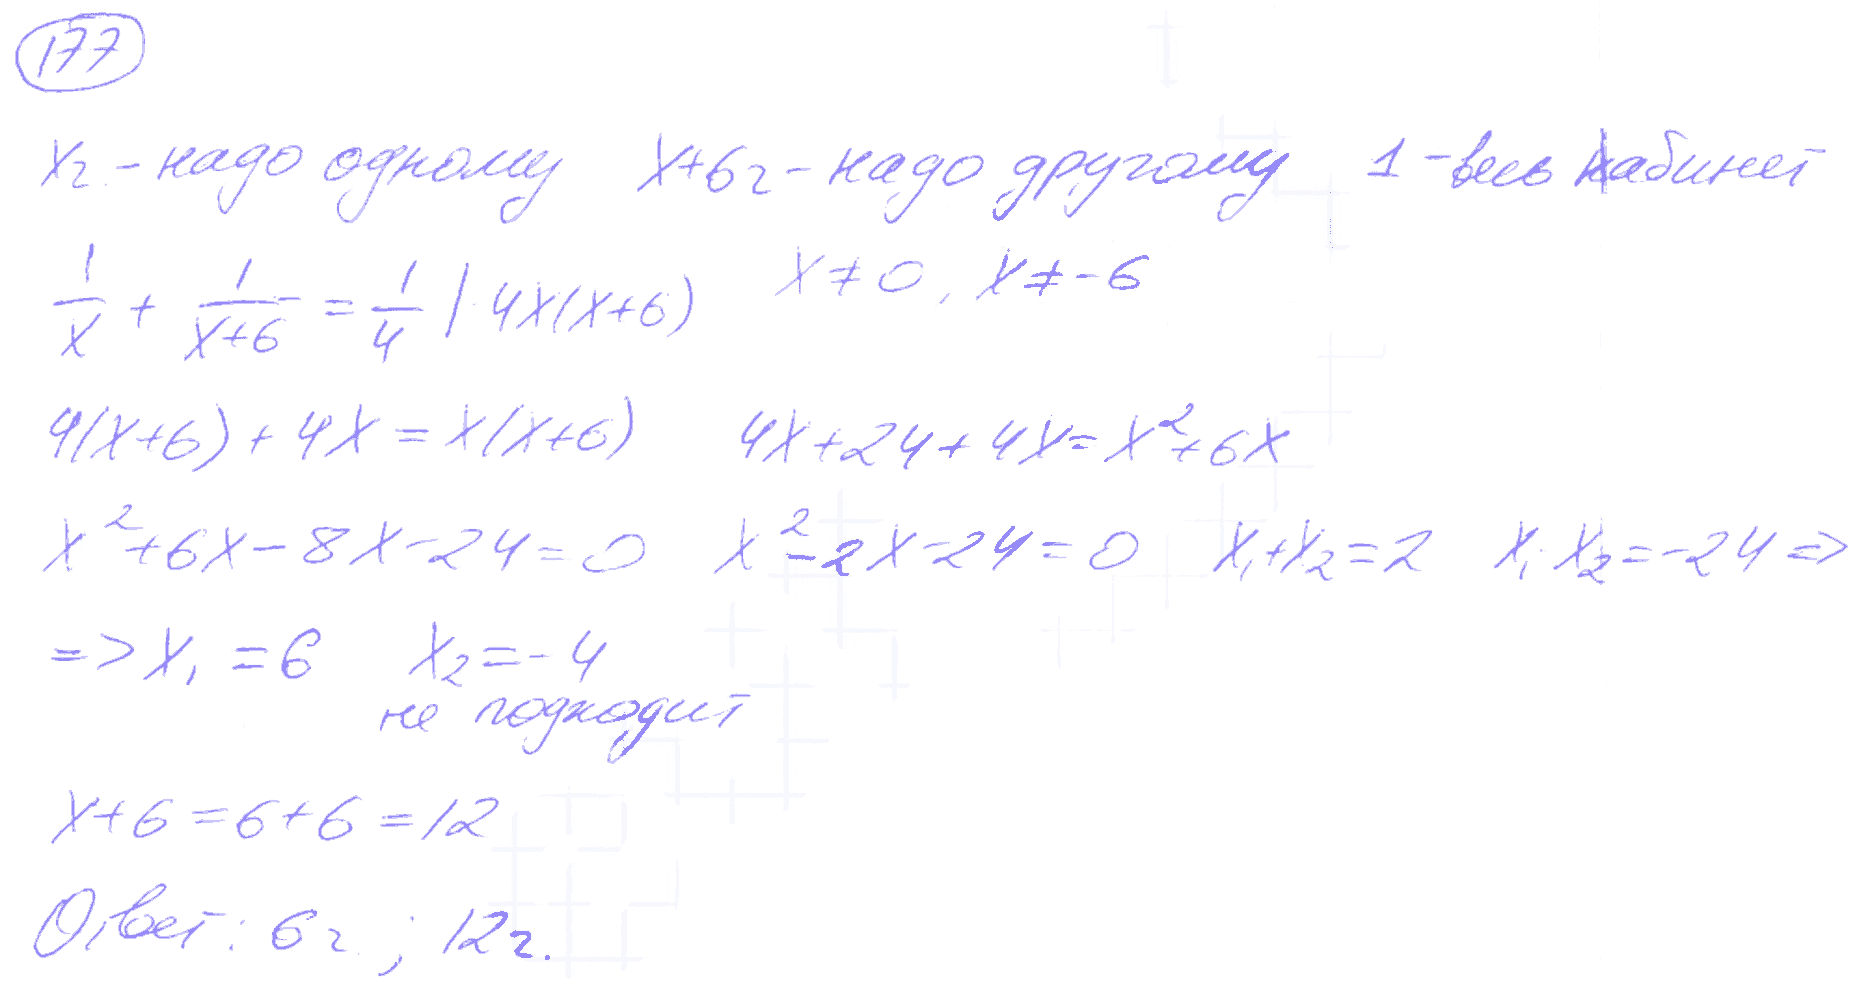 177
xч. - надо одному x+6ч - надо другому 1 - весь кабинет
1/x + 1/(x+6) = 1/4 | 4x(x+6) x ≠ 0, x ≠ -6
4(x+6) + 4x = x(x+6) 4x+24+4x = x²+6x
x²+6x-8x-24=0 x²-2x-24=0 x₁+x₂=2 x₁·x₂=-24 =>
=> x₁ = 6 x₂ = -4
не подходит
x+6=6+6=12
Ответ: 6ч.; 12ч.